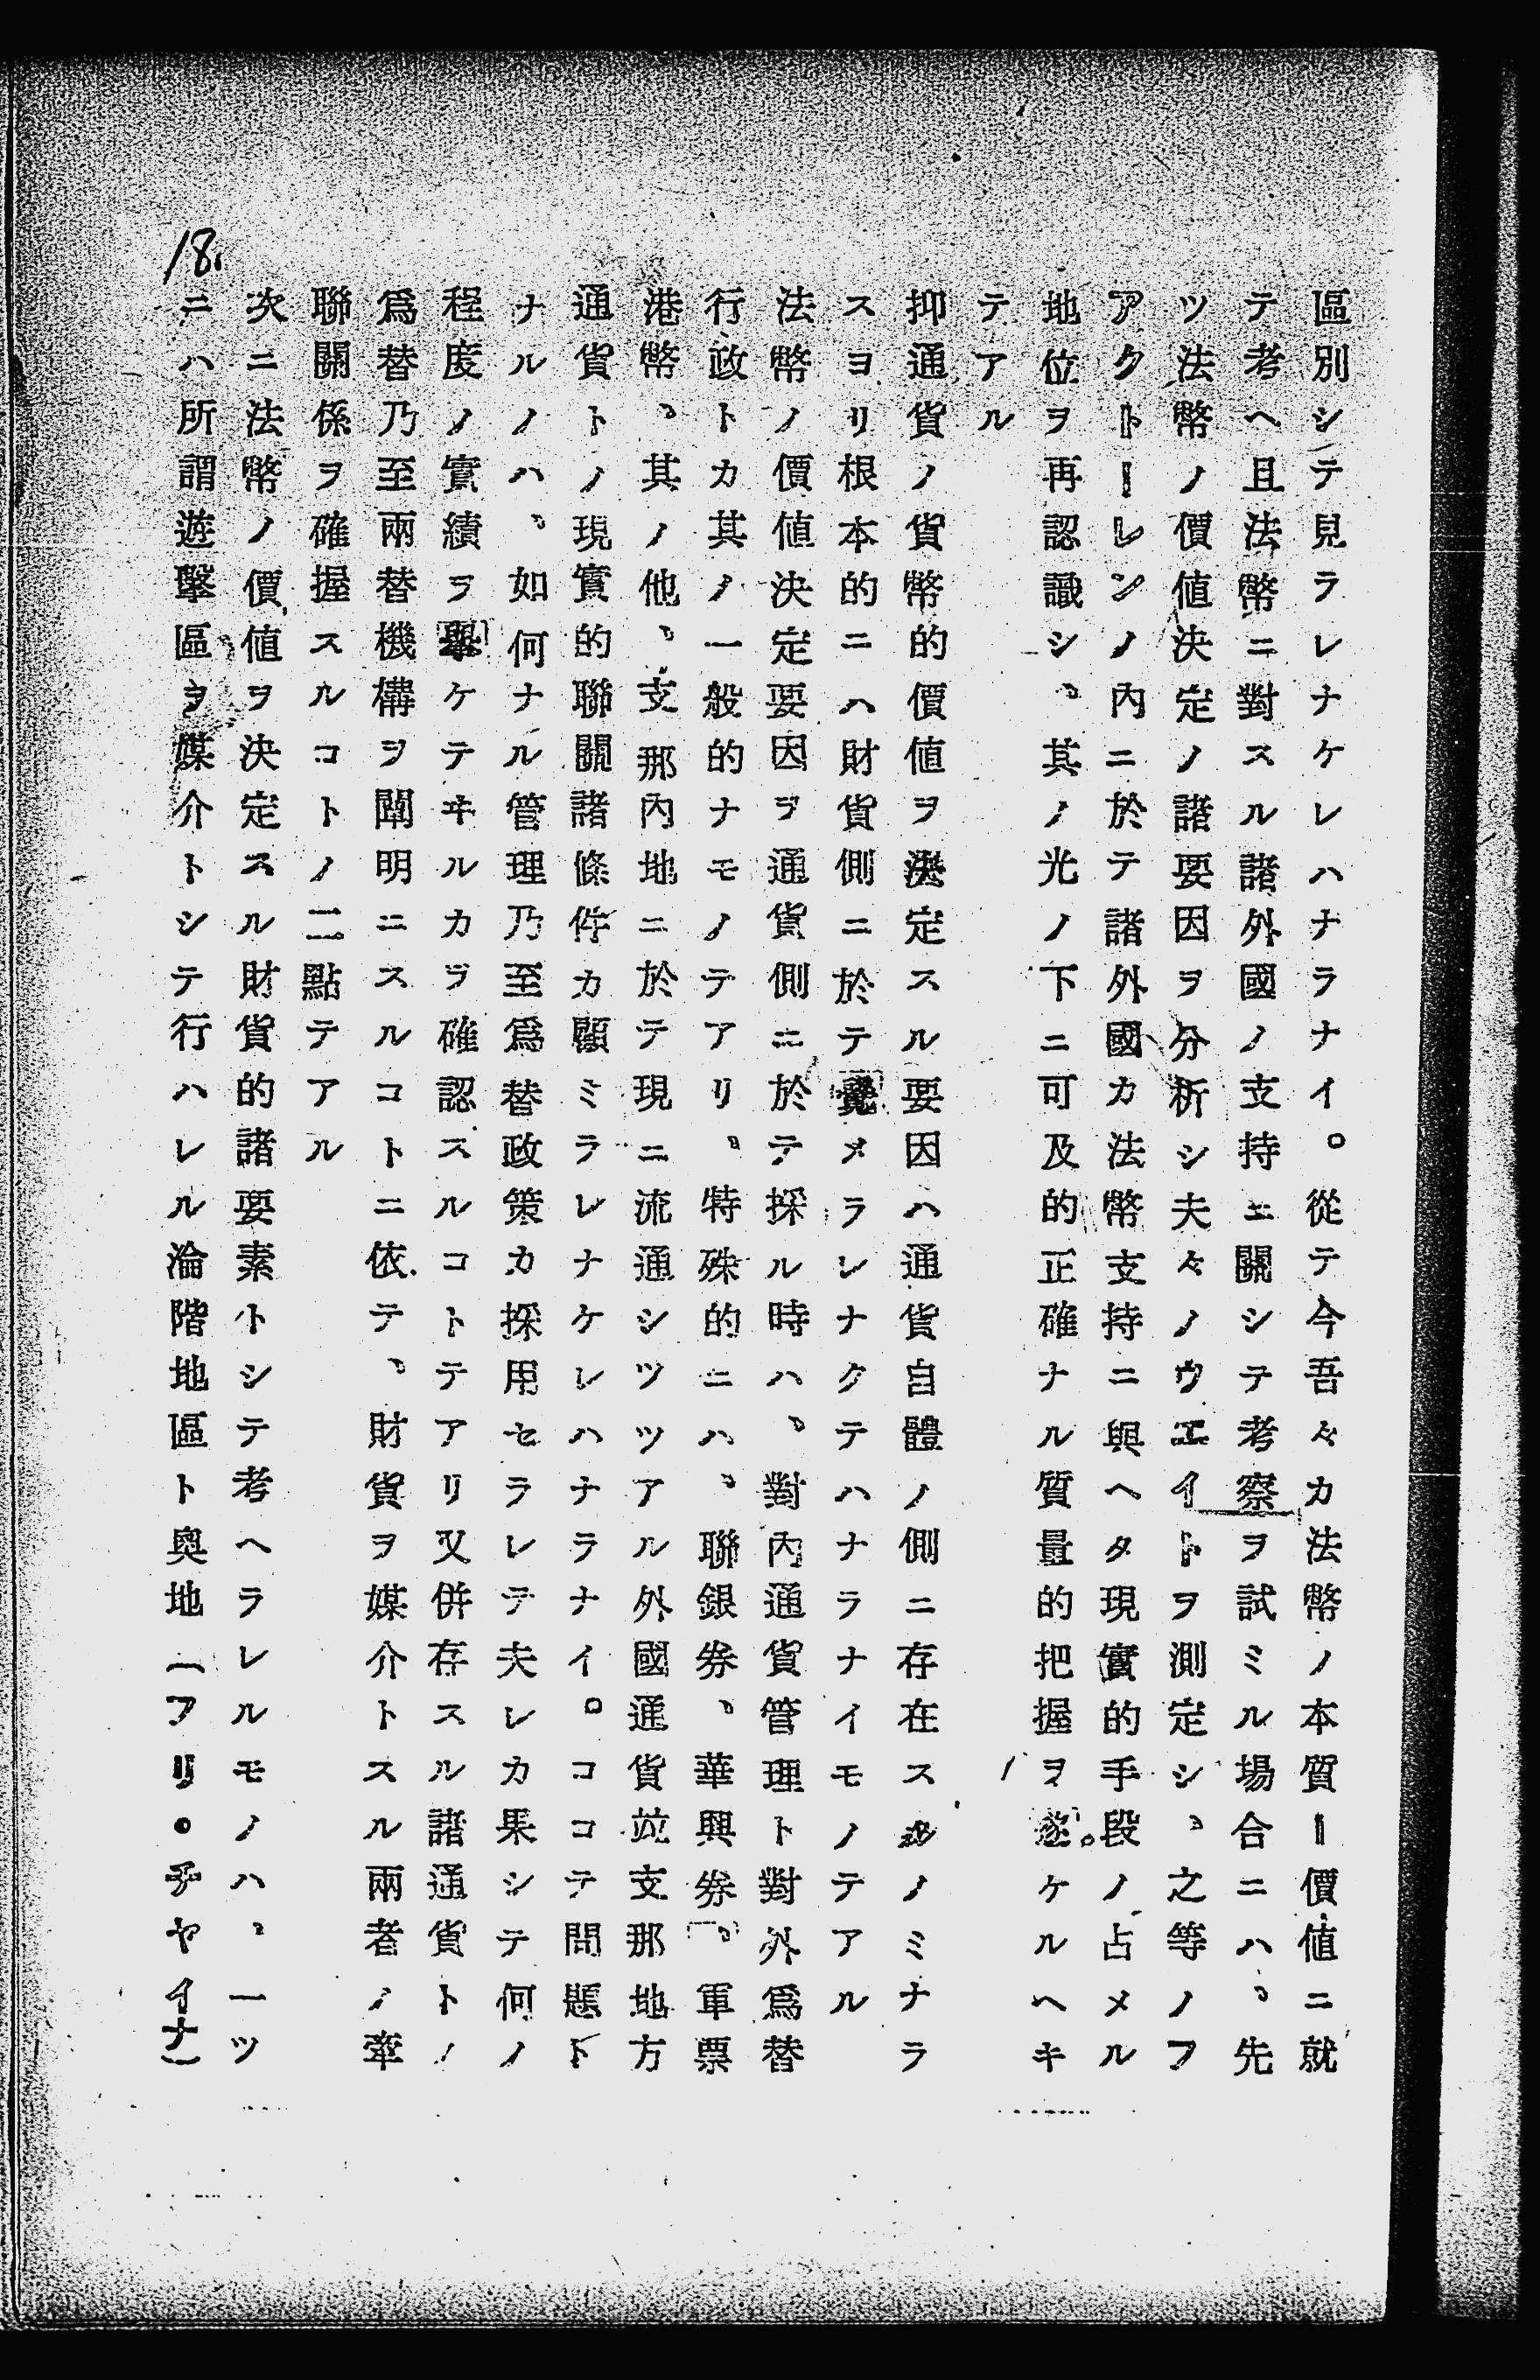 區別シテ見ラレナケレハナラナイ。從テ今吾々カ法幣ノ本質ー價値ニ就
テ考ヘ且法幣ニ對スル諸外國ノ支持ニ關シテ考察ヲ試ミル場合ニハ、先
ツ法幣ノ價値決定ノ諸要因ヲ分析シ夫々ノウエイトヲ測定シ、之等ノフ
アクトーレンノ內ニ於テ諸外國カ法幣支持ニ與ヘタ現實的手段ノ占メル
地位ヲ再認識シ、其ノ光ノ下ニ可及的正確ナル質量的把握ヲ遂ケルヘキ
テアル
抑通貨ノ貨幣的價値ヲ決定スル要因ハ通貨自體ノ側ニ存在スルノミナラ
スヨリ根本的ニハ財貨側ニ於テ覓メラレナクテハナラナイモノテアル
法幣ノ價値決定要因ヲ通貨側ニ於テ採ル時ハ、對內通貨管理ト對外爲替
行政トカ其ノ一般的ナモノテアリ、特殊的ニハ、聯銀券、華興券、軍票
港幣、其ノ他、支那內地ニ於テ現ニ流通シツツアル外國通貨竝支那地方
通貨トノ現實的聯關諸條件カ顧ミラレナケレハナラナイ。ココテ問題ト
ナルノハ、如何ナル管理乃至爲替政策カ採用セラレテ夫レカ果シテ何ノ
程度ノ實績ヲ擧ケテヰルカヲ確認スルコトテアリ又併存スル諸通貨トノ
爲替乃至兩替機構ヲ闡明ニスルコトニ依テ、財貨ヲ媒介トスル兩者ノ牽
聯關係ヲ確握スルコトノ二點テアル
次ニ法幣ノ價値ヲ決定スル財貨的諸要素トシテ考ヘラレルモノハ、一ツ
ニハ所謂遊擊區ヲ媒介トシテ行ハレル淪陷地區ト奧地(フリー・チヤイナ)
18.